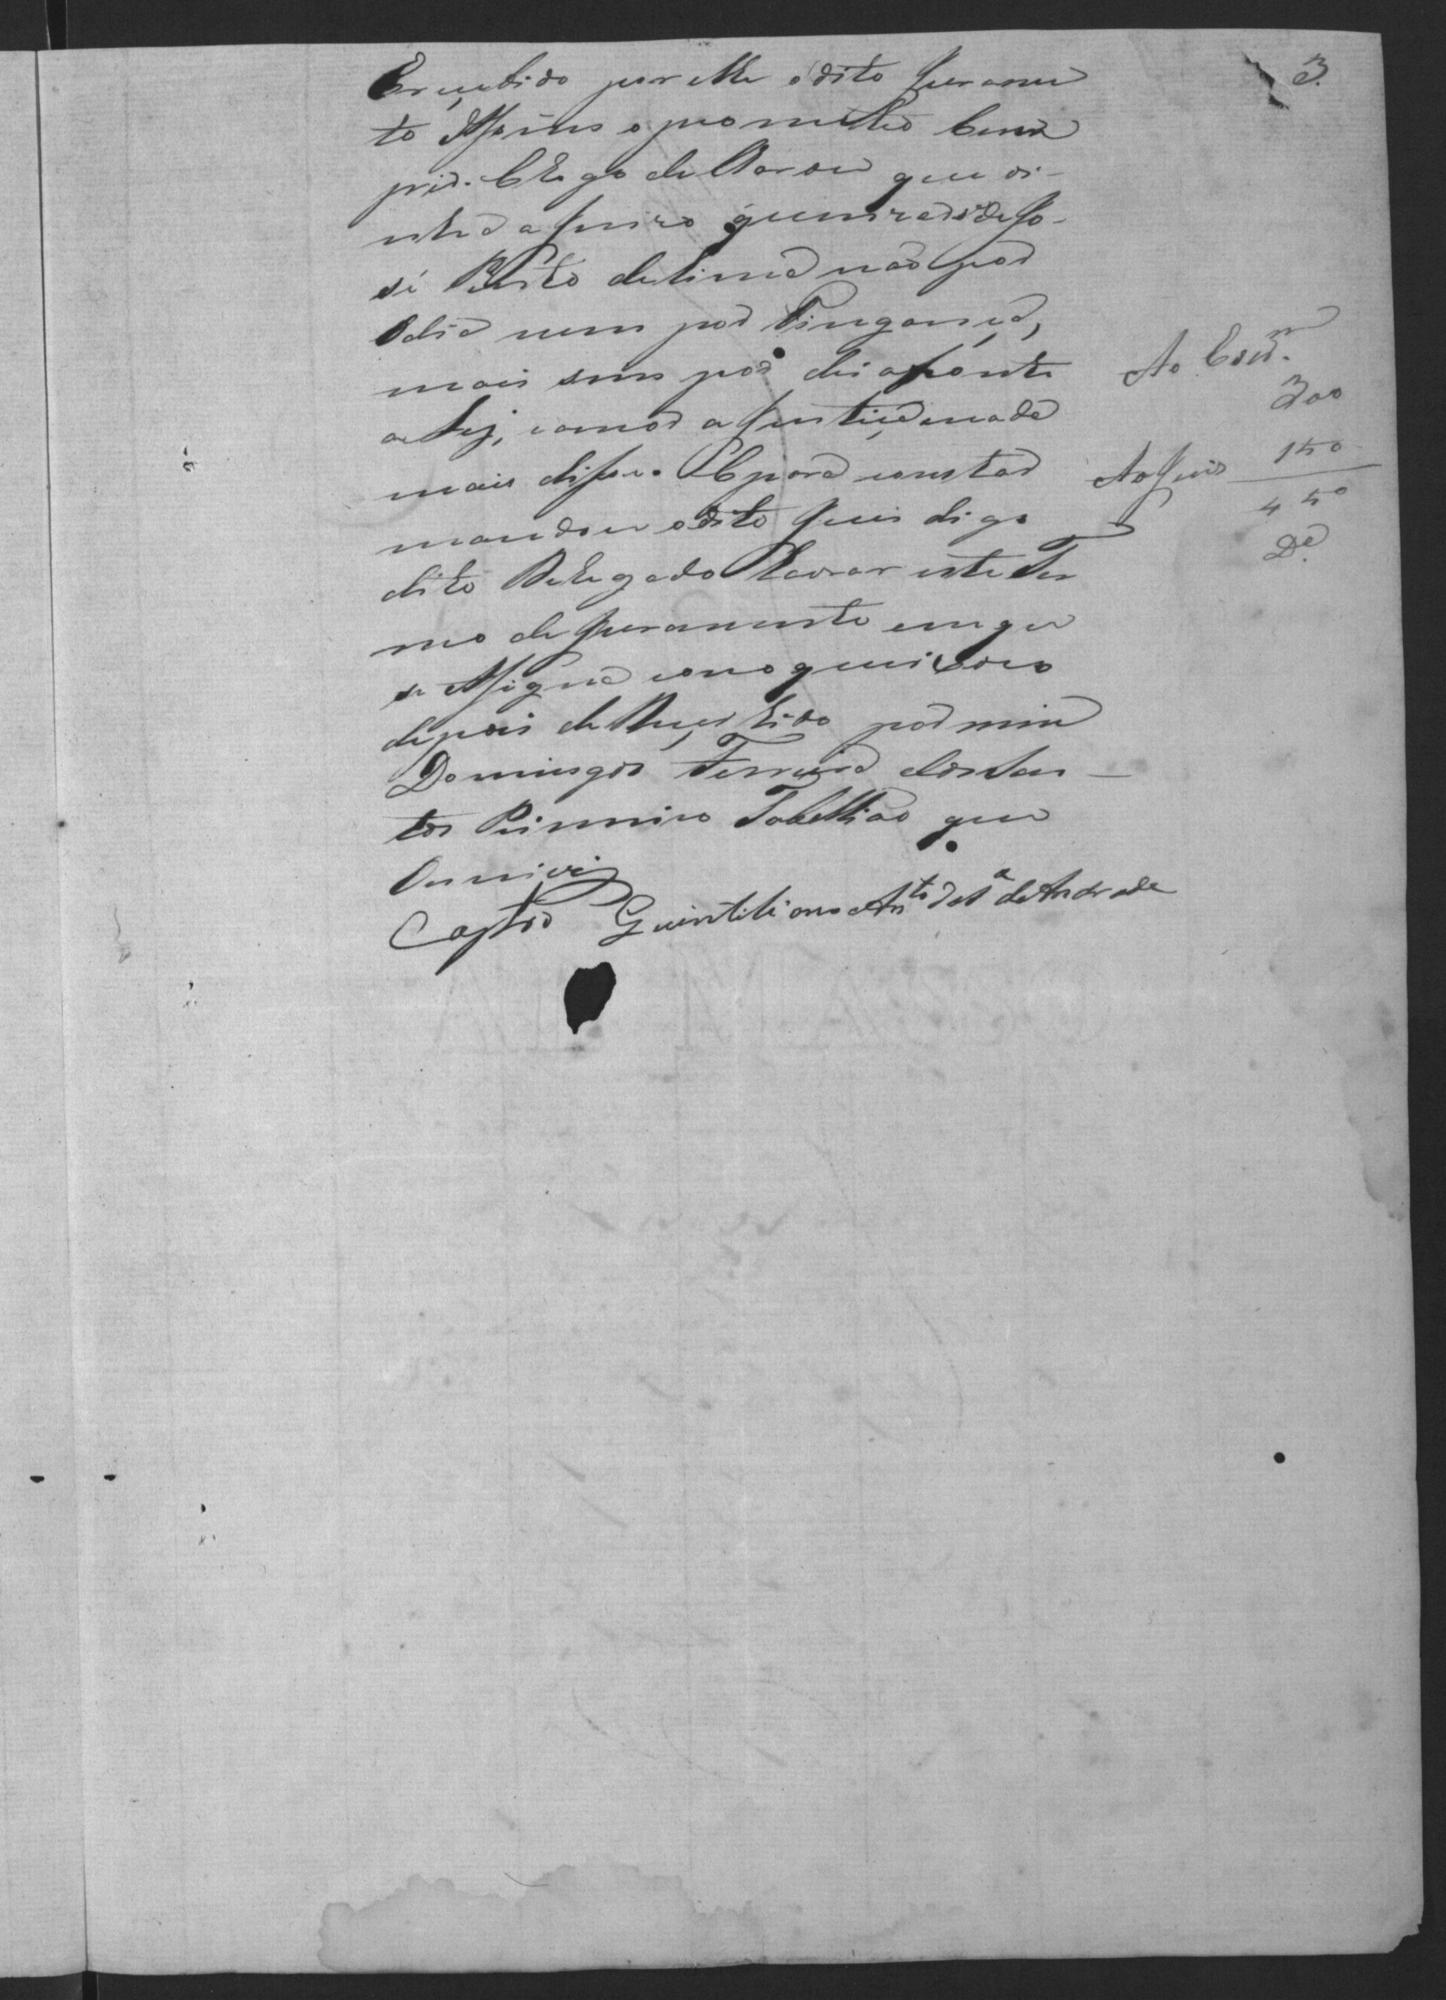 3
Erecebido por elle odito Juramen
to Assim o prometteo Cum
prir. E logo declarou que di
nha queixa de Jo-
sé Bento de lima não por
Odio nem por Vingança,
mais sim por
a Lej, como a Justiça enada
mais disse. E para constar
mandou odito Juis digo
dito Delegado Lavrar este Ter
mo de Juramento em que
se Assigna com o queixoso
depois de por mim
Domingos Ferreira dos San-
tos Primeiro Tabellião que
Escrivi
Castro Quintiliano Ant.to de S.a de Andrade
Ao Escr.m
300
Ao Juis 150
450
De.